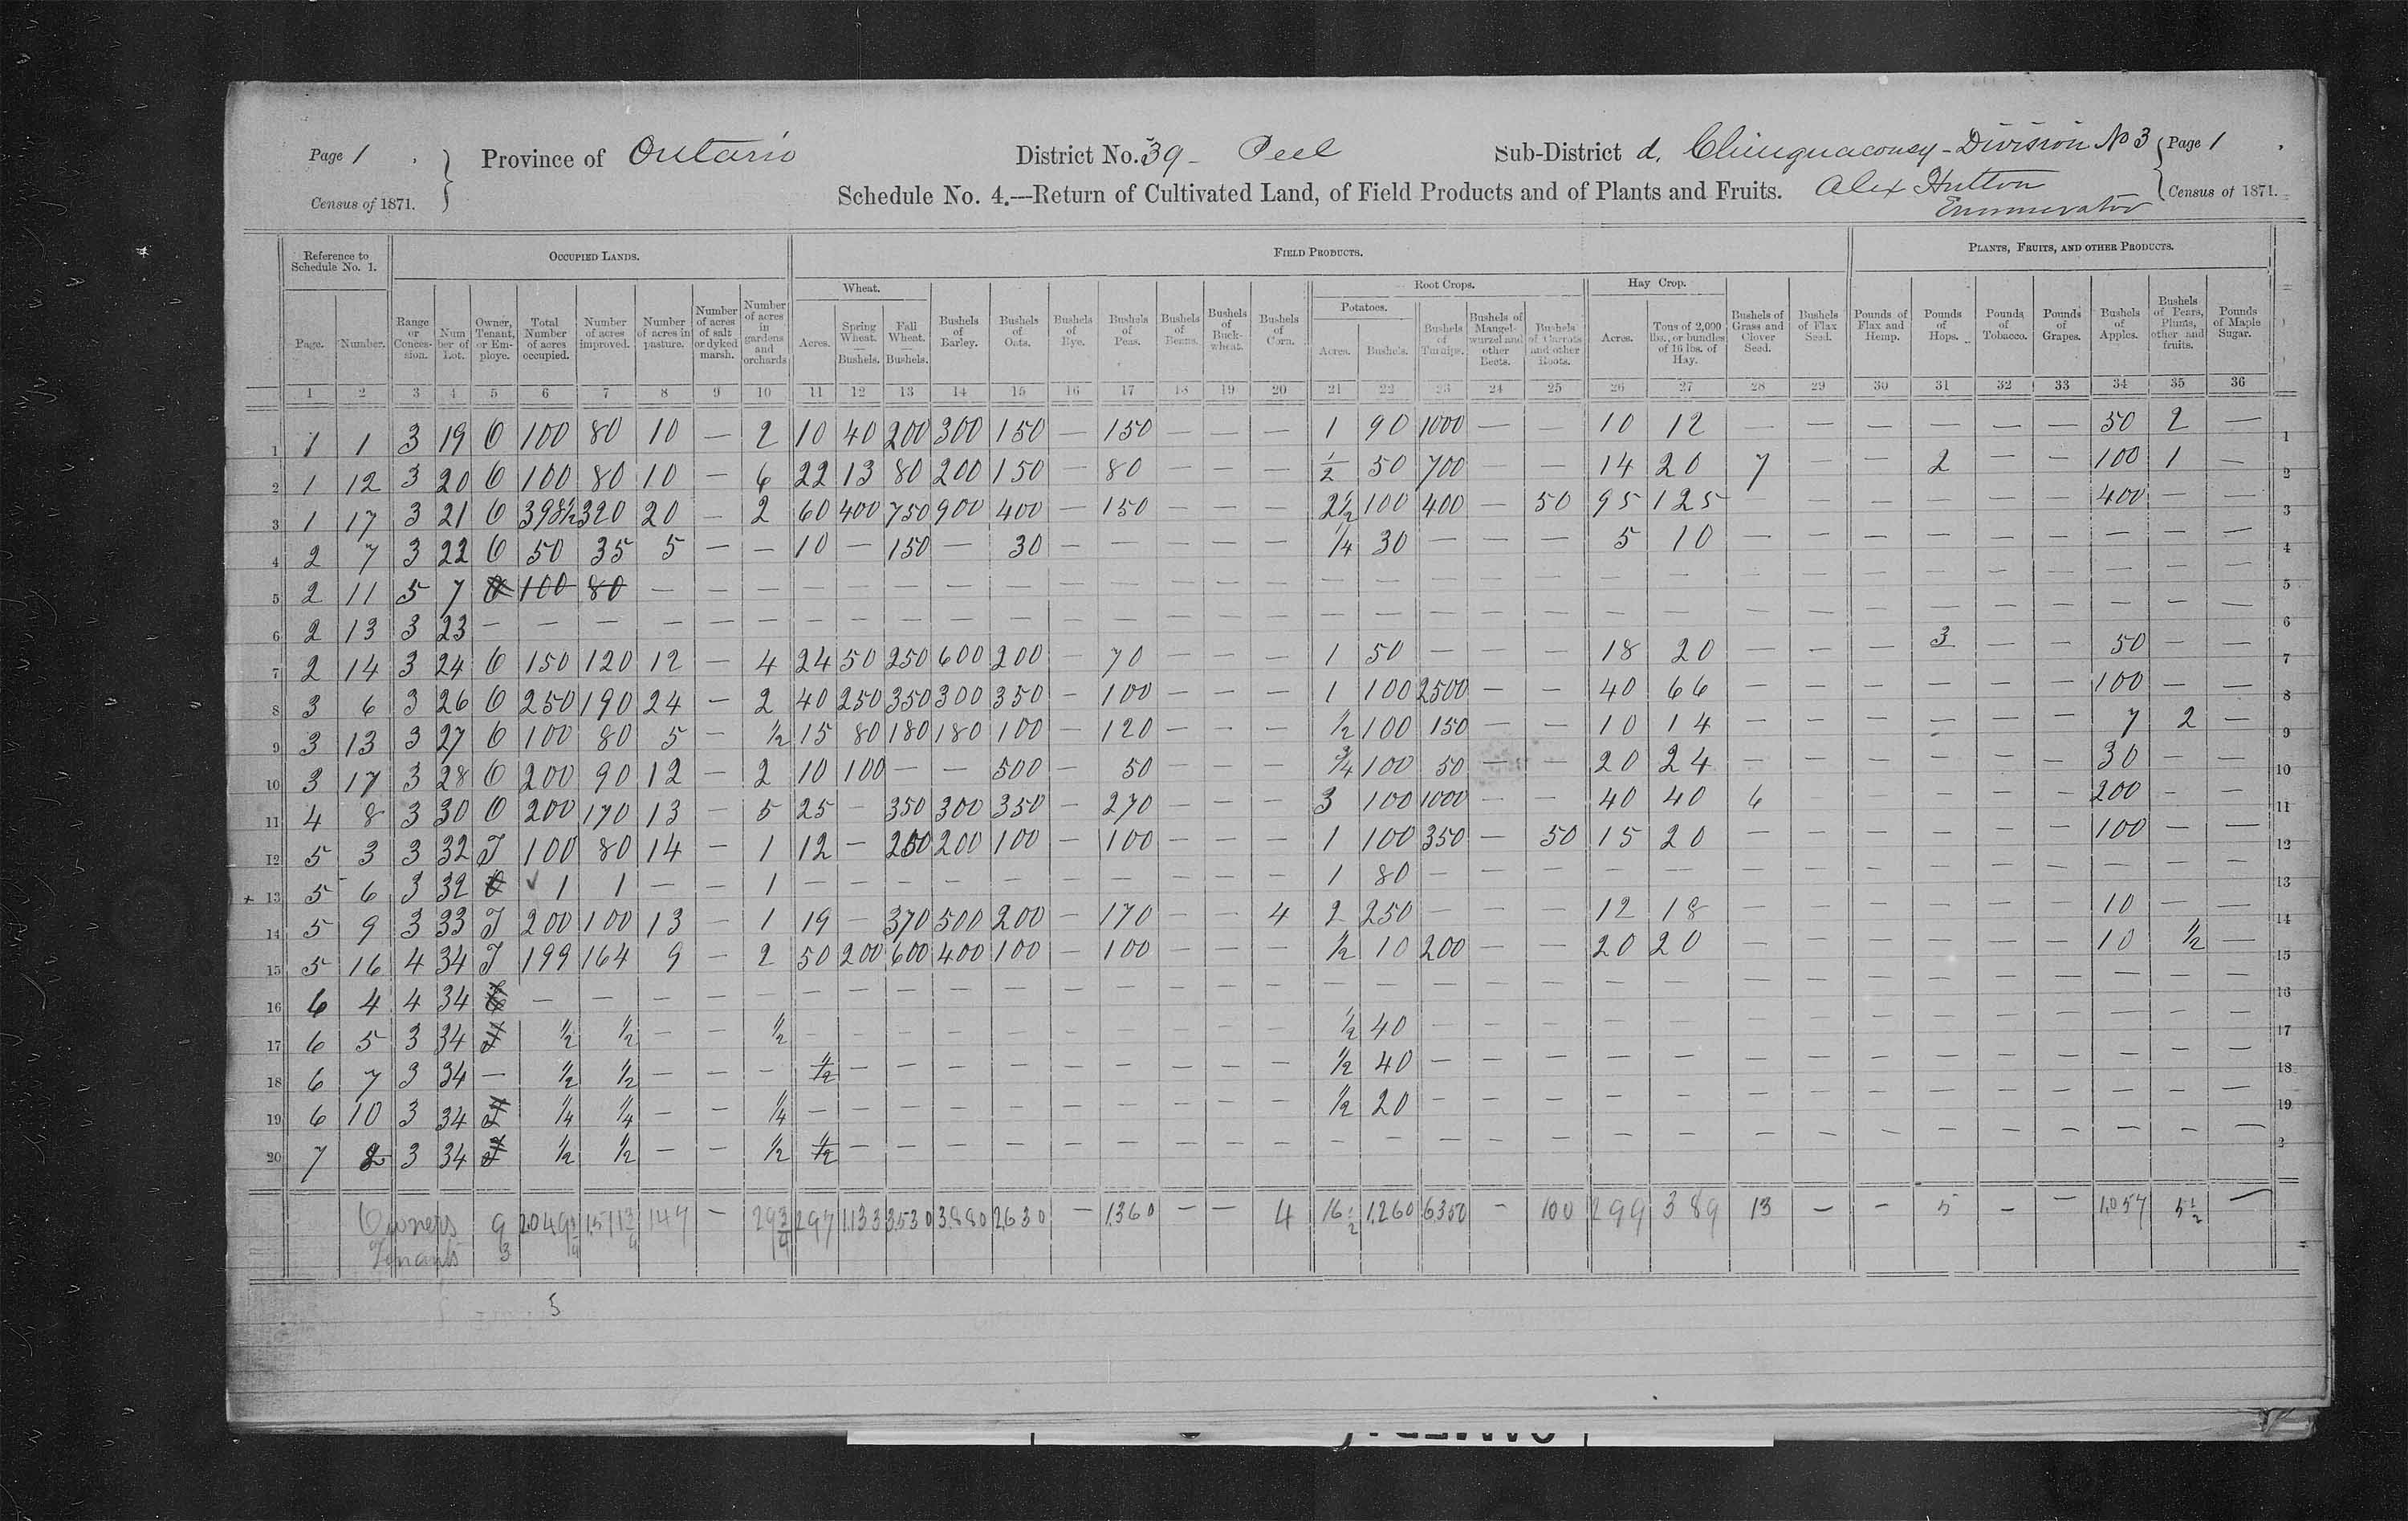 Page 1 } Province of Ontario District No. 39 - Peel Sub-District d. Chinguacousy - Division No 3 { Page 1
Census of 1871. Schedule No. 4.—Return of Cultivated Land, of Field Products and of Plants and Fruits. Alex Hutton Census of 1871.
Enumerator
Reference to Schedule No. 1. OCCUPIED LANDS. FIELD PRODUCTS. PLANTS, FRUITS, AND OTHER PRODUCTS.
Wheat. Root Crops. Hay Crop.
Potatoes.
Page. Number. Range or Conces-sion. Num ber of Lot. Owner, Tenant, or Em-ploye. Total Number of acres occupied. Number of acres improved. Number of acres in pasture. Number of acres of salt or dyked marsh. Number of acres in gardens and orchards Acres. Spring Wheat. — Bushels. Fall Wheat. — Bushels. Bushels of Barley. Bushels of Oats. Bushels of Rye. Bushels of Peas. Bushels of Beans. Bushels of Buck-wheat. Bushels of Corn. Acres. Bushels. Bushels of Turnips. Bushels of Mangel-wurzel and other Beets. Bushels of Carrots and other Roots. Acres. Tons of 2,000 lbs., or bundles of 16 lbs. of Hay. Bushels of Grass and Clover Seed. Bushels of Flax Seed. Pounds of Flax and Hemp. Pounds of Hops. Pounds of Tobacco. Pounds of Grapes. Bushels of Apples. Bushels of Pears, Plums, other and fruits. Pounds of Maple Sugar.
1 2 3 4 5 6 7 8 9 10 11 12 13 14 15 16 17 18 19 20 21 22 23 24 25 26 27 28 29 30 31 32 33 34 35 36
1 1 1 3 19 O 100 80 10 — 2 10 40 200 300 150 — 150 — — — 1 90 1000 — — 10 12 — — — — — — 50 2 — 1
2 1 12 3 20 O 100 80 10 — 6 22 13 80 200 150 — 80 — — — 1/2 50 700 — — 14 20 7 — — 2 — — 100 1 — 2
3 1 17 3 21 O 398½ 320 20 — 2 60 400 750 900 400 — 150 — — — 2½ 100 400 — 50 95 125 — — — — — — 400 — — 3
4 2 7 3 22 O 50 35 5 — — 10 — 150 — 30 — — — — — 1/4 30 — — — 5 10 — — — — — — — — — 4
5 2 11 5 7 O 100 80 — — — — — — — — — — — — — — — — — — — — — — — — — — — — — 5
6 2 13 3 23 — — — — — — — — — — — — — — — — — — — — — — — — — — — — — — — — 6
7 2 14 3 24 O 150 120 12 — 4 24 50 250 600 200 — 70 — — — 1 50 — — — 18 20 — — — 3 — — 50 — — 7
8 3 6 3 26 O 250 190 24 — 2 40 250 350 300 350 — 100 — — — 1 100 2500 — — 40 66 — — — — — — 100 — — 8
9 3 13 3 27 O 100 80 5 — ½ 15 80 180 180 100 — 120 — — — ½ 100 150 — — 10 14 — — — — — — 7 2 — 9
10 3 17 3 28 O 200 90 12 — 2 10 100 — — 500 — 50 — — — ¾ 100 50 — — 20 24 — — — — — — 30 — — 10
11 4 8 3 30 O 200 170 13 — 5 25 — 350 300 350 — 270 — — — 3 100 1000 — — 40 40 6 — — — 200 — — 11
12 5 3 3 32 T 100 80 14 — 1 12 — 250 200 100 — 100 — — — 1 100 350 — 50 15 20 — — — — — — 100 — — 12
+ 13 5 6 3 32 O ✓ 1 1 — — 1 — — — — — — — — — — 1 80 — — — — — — — — — — — — — — 13
14 5 9 3 33 T 200 100 13 — 1 19 — 370 500 200 — 170 — — 4 2 250 — — — 12 18 — — — — — — 10 — — 14
15 5 16 4 34 T 199 164 9 — 2 50 200 600 400 100 — 100 — — — ½ 10 200 — — 20 20 — — — — — — 10 ½ — 15
16 6 4 4 34 — — — — — — — — — — — — — — — — — — — — — — — — — — — — — — — 16
17 6 5 3 34 T ½ ½ — — ½ — — — — — — — — — — ½ 40 — — — — — — — — — — — — — — 17
18 6 7 3 34 — ½ ½ — — — ½ — — — — — — — — — ½ 40 — — — — — — — — — — — — — — 18
19 6 10 3 34 T ¼ ¼ — — ¼ — — — — — — — — — — ½ 20 — — — — — — — — — — — — — — 19
20 7 2 3 34 T ½ ½ — — ½ ½ — — — — — — — — — — — — — — — — — — — — — — — — — 2
Owners 9 2,049¼ 1,571¾ 147 — 29¾ 297 1,133 3,530 3,880 2,630 — 1,360 — — 4 16½ 1,260 6,350 — 100 299 389 13 — — 5 — — 1,057 5½ —
Tenants 3
5